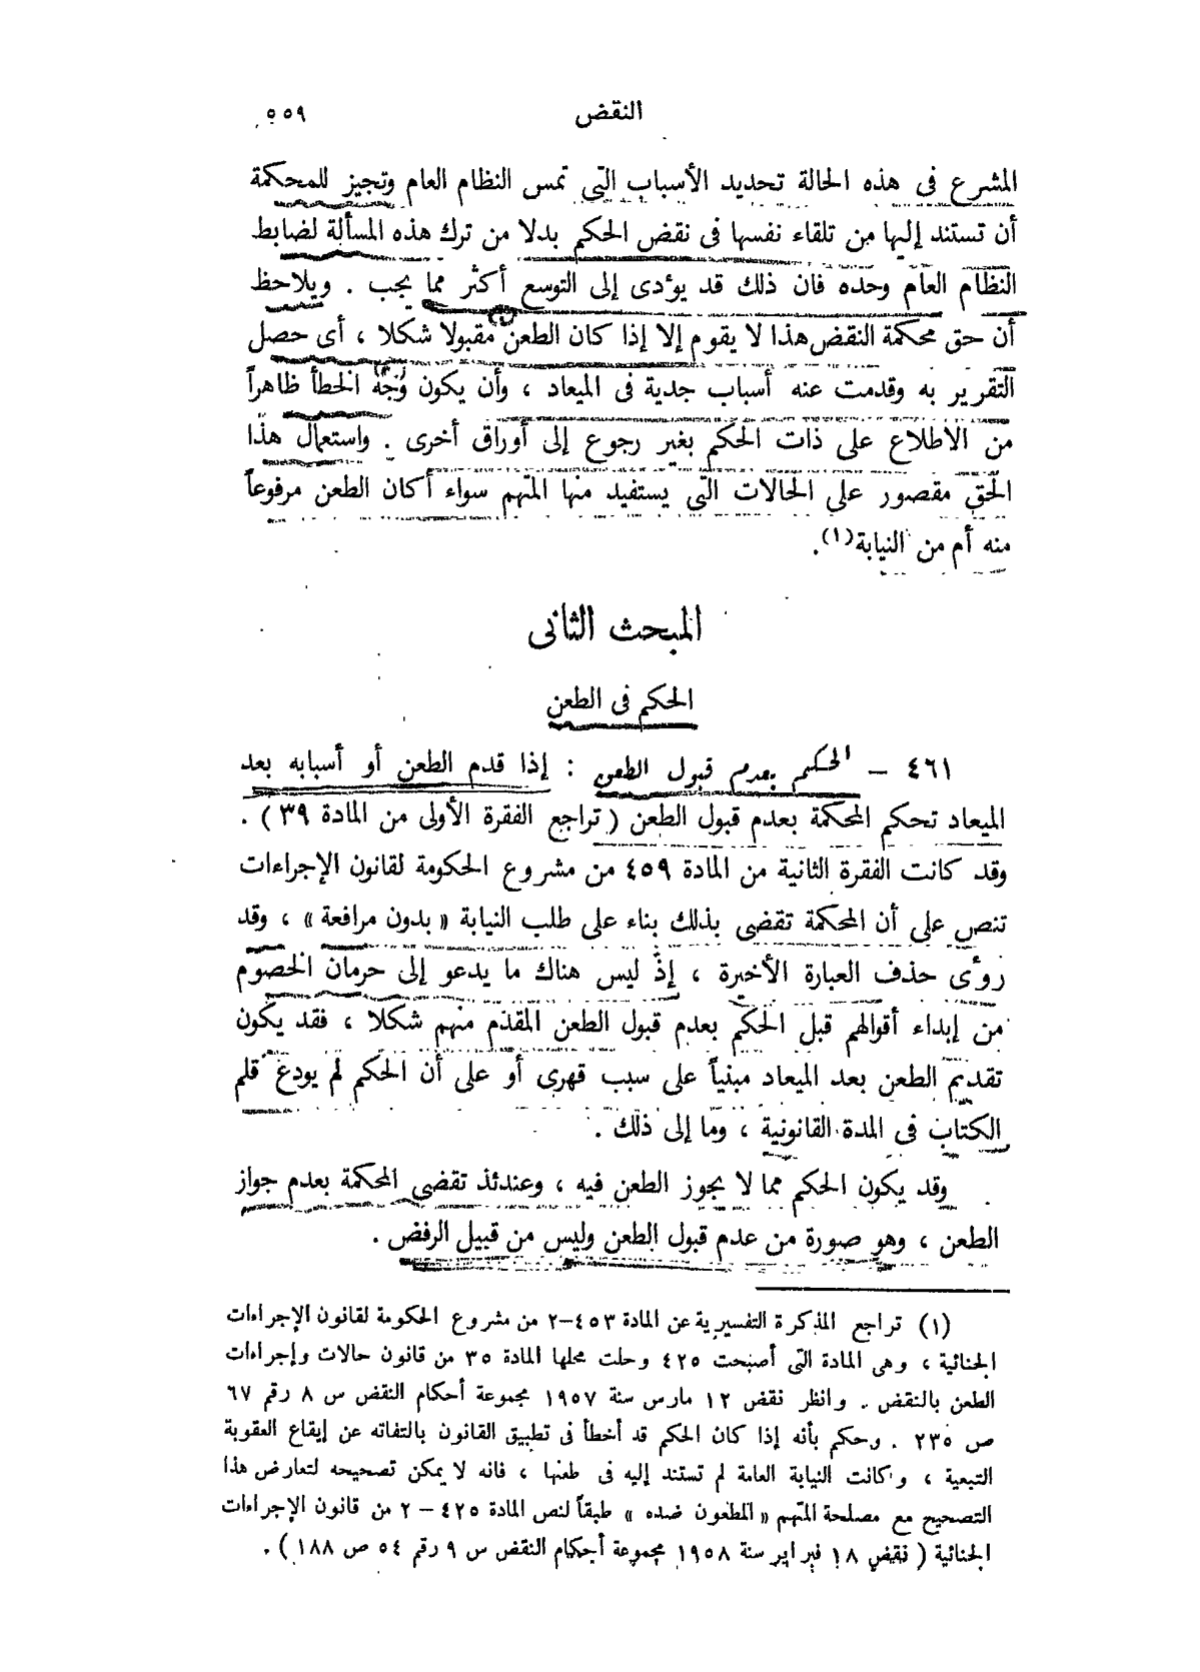 النقض
٥٥٩
المشرع فى هذه الحالة تحديد الأسباب التى تمس النظام العام وتجيز للمحكمة
أن تستند إليها من تلقاء نفسها فى نقض الحكم بدلا من ترك هذه المسألة لضابط
النظام العام وحده فان ذلك قد يؤدى إلى التوسع أكثر مما يجب . ويلاحظ
أن حق محكمة النقض هذا لا يقوم إلا إذا كان الطعن مقبولا شكلا ، أى حصل
التقرير به وقدمت عنه أسباب جدية فى الميعاد ، وأن يكون وجه الخطأ ظاهراً
من الاطلاع على ذات الحكم بغير رجوع إلى أوراق أخرى . واستعمال هذا
الحق مقصور على الحالات التى يستفيد منها المتهم سواء أكان الطعن مرفوعاً
منه أم من النيابة (١) .
المبحث الثانى
الحكم فى الطعن
٤٦١ – الحكم بعدم قبول الطعن : إذا قدم الطعن أو أسبابه بعد
الميعاد تحكم المحكمة بعدم قبول الطعن ( تراجع الفقرة الأولى من المادة ٣٩ ) .
وقد كانت الفقرة الثانية من المادة ٤٥٩ من مشروع الحكومة لقانون الإجراءات
تنص على أن المحكمة تقضى بذلك بناء على طلب النيابة « بدون مرافعة » ، وقد
رؤى حذف العبارة الأخيرة ، إذ ليس هناك ما يدعو إلى حرمان الخصوم
من إبداء أقوالهم قبل الحكم بعدم قبول الطعن المقدم منهم شكلا ، فقد يكون
تقديم الطعن بعد الميعاد مبنياً على سبب قهرى أو على أن الحكم لم يودع قلم
الكتاب فى المدة القانونية ، وما إلى ذلك .
وقد يكون الحكم مما لا يجوز الطعن فيه ، وعندئذ تقضى المحكمة بعدم جواز
الطعن ، وهو صورة من عدم قبول الطعن وليس من قبيل الرفض .
(١) تراجع المذكرة التفسيرية عن المادة ٤٥٣–٢ من مشروع الحكومة لقانون الإجراءات
الجنائية ، وهى المادة التى أصبحت ٤٢٥ وحلت محلها المادة ٣٥ من قانون حالات وإجراءات
الطعن بالنقض . وانظر نقض ١٢ مارس سنة ١٩٥٧ مجموعة أحكام النقض س ٨ رقم ٦٧
ص ٢٣٥ . وحكم بأنه إذا كان الحكم قد أخطأ فى تطبيق القانون بالتفاته عن إيقاع العقوبة
التبعية ، وكانت النيابة العامة لم تستند إليه فى طعنها ، فانه لا يمكن تصحيحه لتعارض هذا
التصحيح مع مصلحة المتهم « المطعون ضده » طبقاً لنص المادة ٤٢٥ – ٢ من قانون الإجراءات
الجنائية ( نقض ١٨ فبراير سنة ١٩٥٨ مجموعة أحكام النقض س ٩ رقم ٥٤ ص ١٨٨ ) .